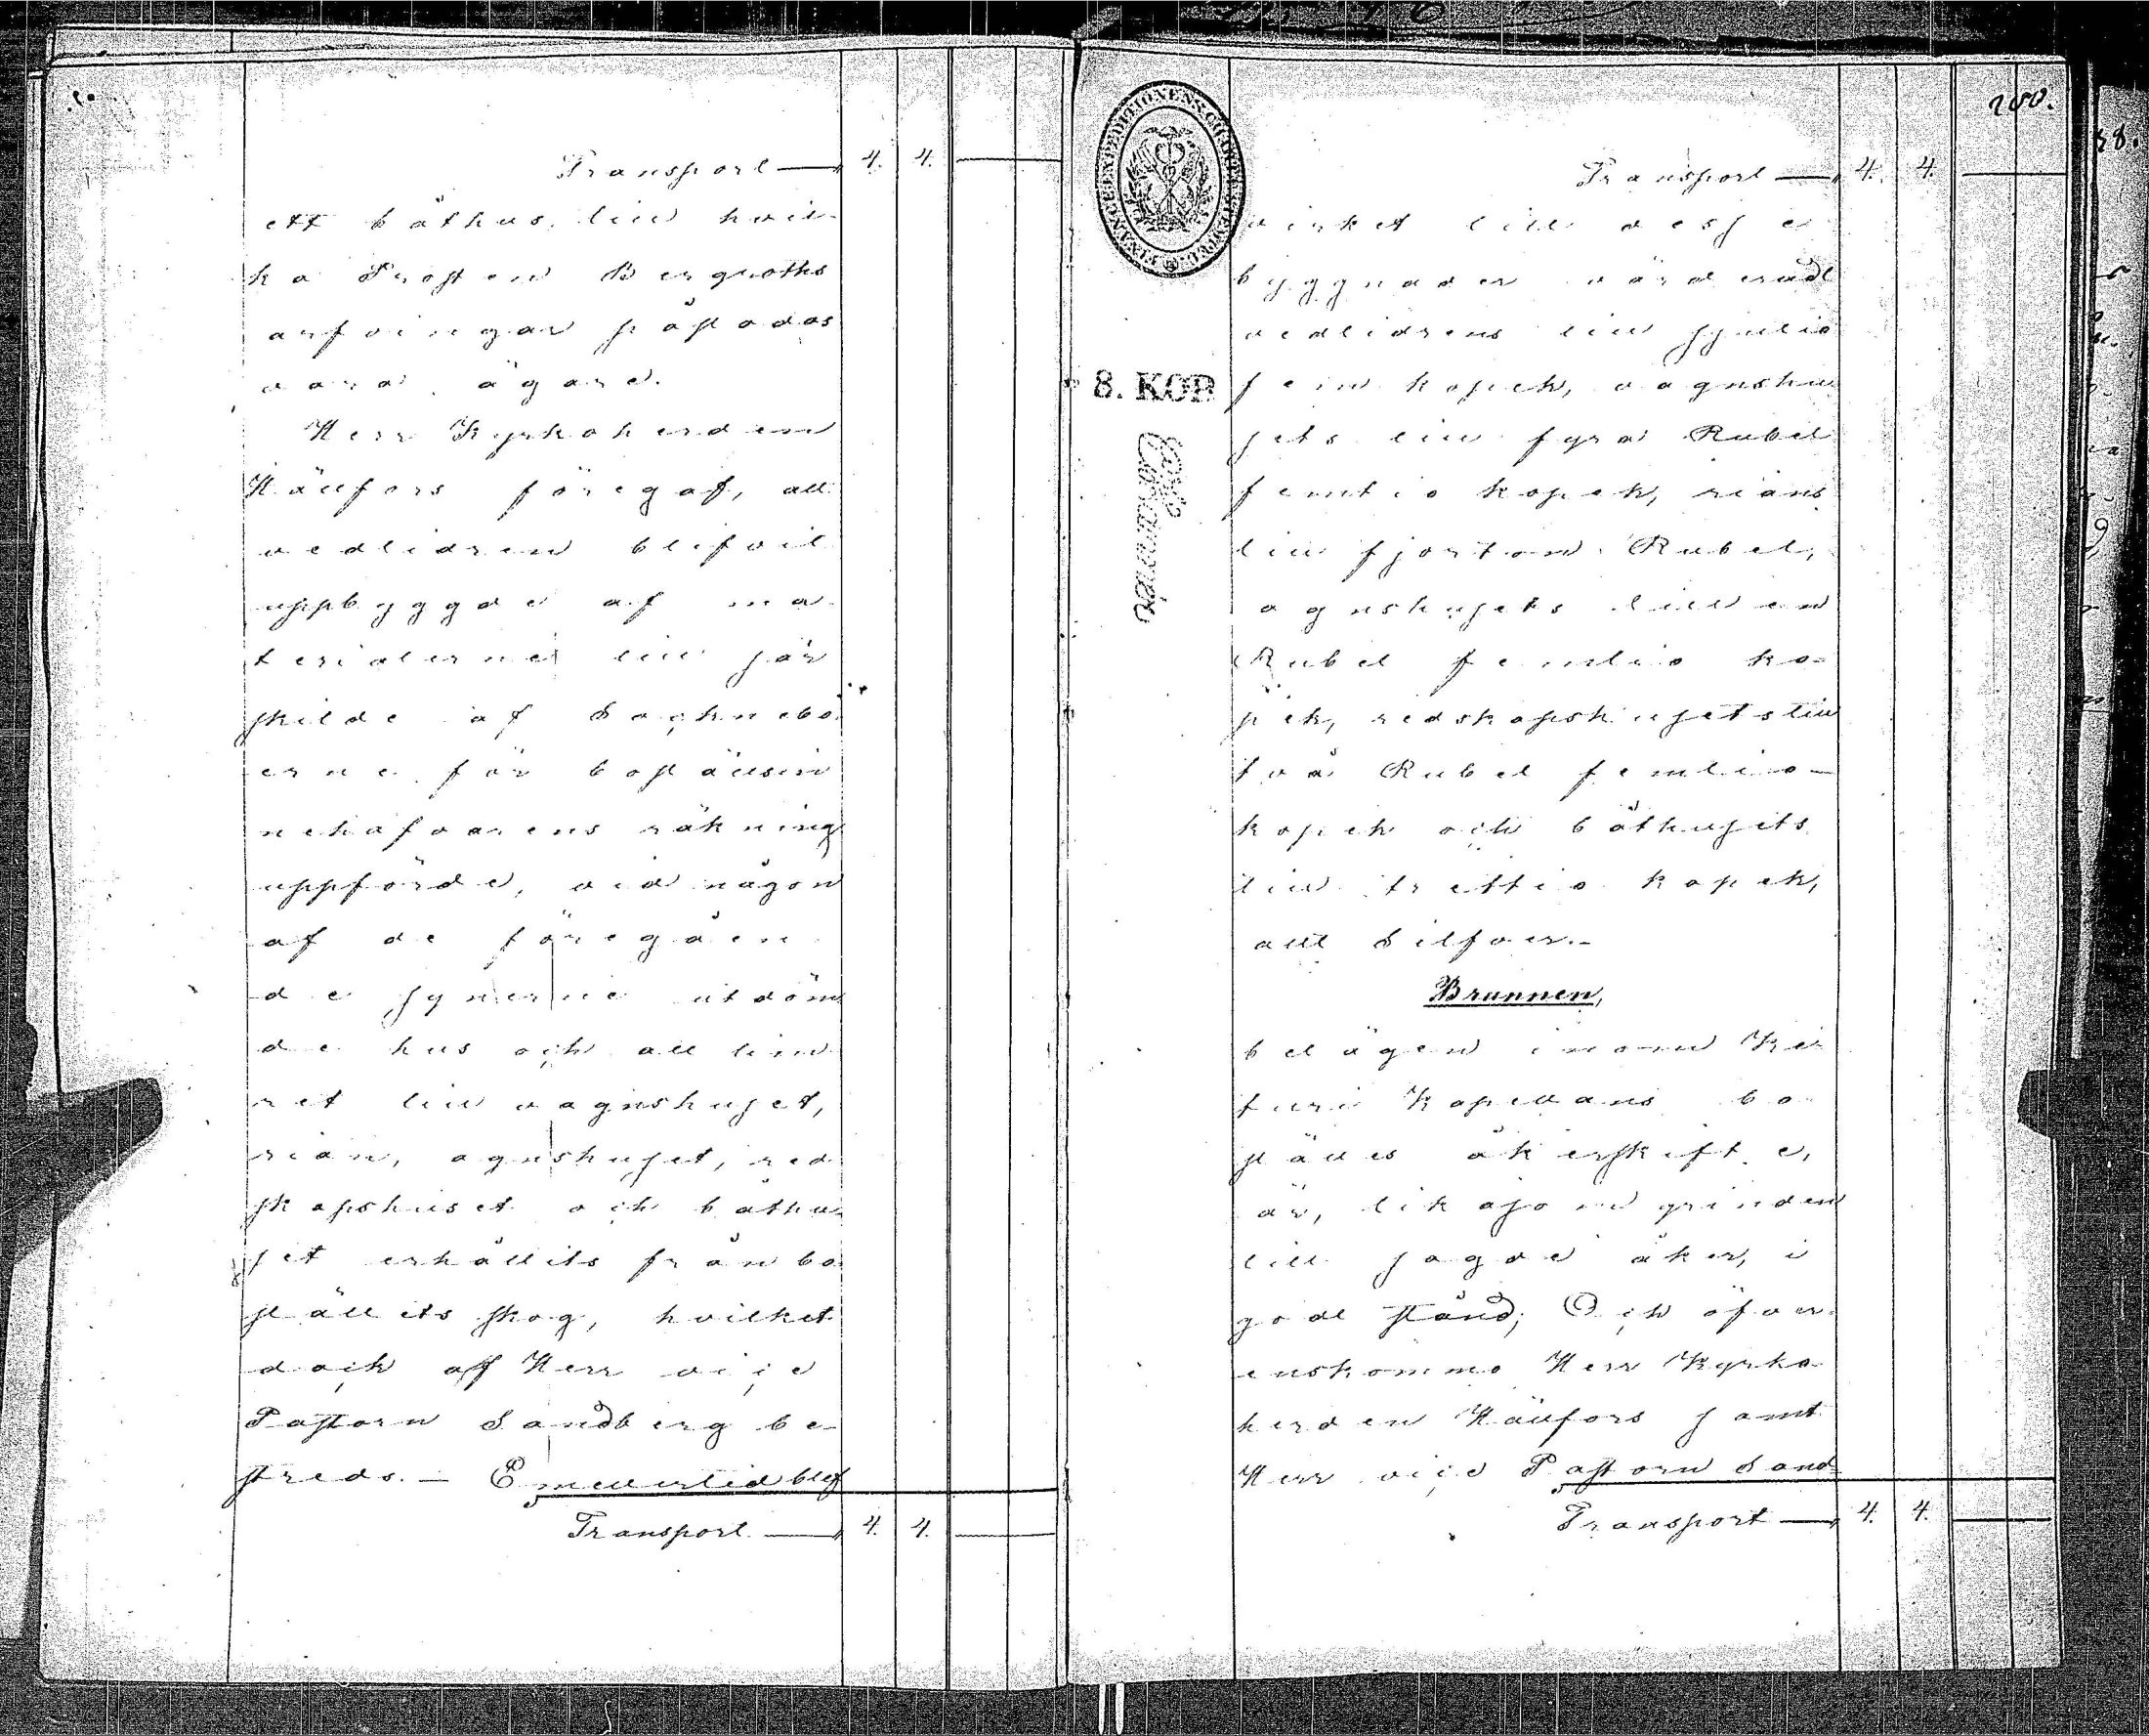 Transport — 4. 4. —
ett båthus, till hvil-
ka Prosten Bergroths
arfvingar påstodos
vara ägare.
Herr Kyrkoherden
Hällfors föregaf, att
vedlidren blifvit
uppbyggde af ma-
terialierne till sär-
skilde af Socknebo-
erne för boställsin-
nehafvarens räkning
uppförde, vid någon
af de föregåen-
de synerne utdöm-
de hus och att tim-
ret till vagnshuset,
rian, agnshuset, red-
skapshuset och båthu-
set erhållits från bo-
ställets skog, hvilket
dock af Herr vice
Pastorn Sandberg be-
streds. — Emellertid blef
Transport — 4. 4. —
280.
FINANCE EXPEDITIONENS CHARTÆ STEMPEL
8. KOP
Transport — 4. 4. —
virket till desse
byggnader värderadt
vedlidrens till sjutio
fem kopek, vagnshu-
sets till fyra Rubel
femtio kopek, rians
till fjorton Rubel,
agnshusets till en
Rubel femtio ko-
pek, redskapshusets till
två Rubel femtio
kopek och båthusets
till trettio kopek,
allt Silfver.—
Brunnen,
belägen inom
Kapellans bo-
ställes åkerskifte,
är, likasom grinden
till sagde åker, i
godt stånd; Och öfver-
enskommo Herr Kyrko-
herden Hällfors samt
Herr vice Pastorn Sand-
Transport — 4. 4. —